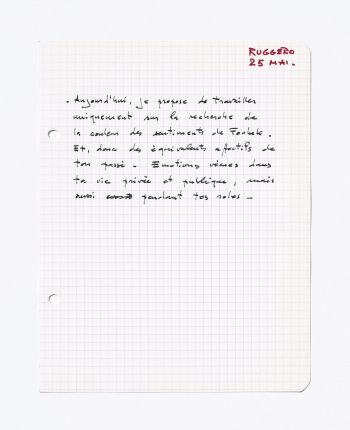 RUGGERO
25 MAI.
. Aujourd'hui, je propose de travailler
uniquement sur la recherche de
la couleur des sentiments de
Et, donc des équivalents affectifs de
ton passé. Emotions vécues dans
ta vie privée et publique, mais
aussi pendant tes roles –